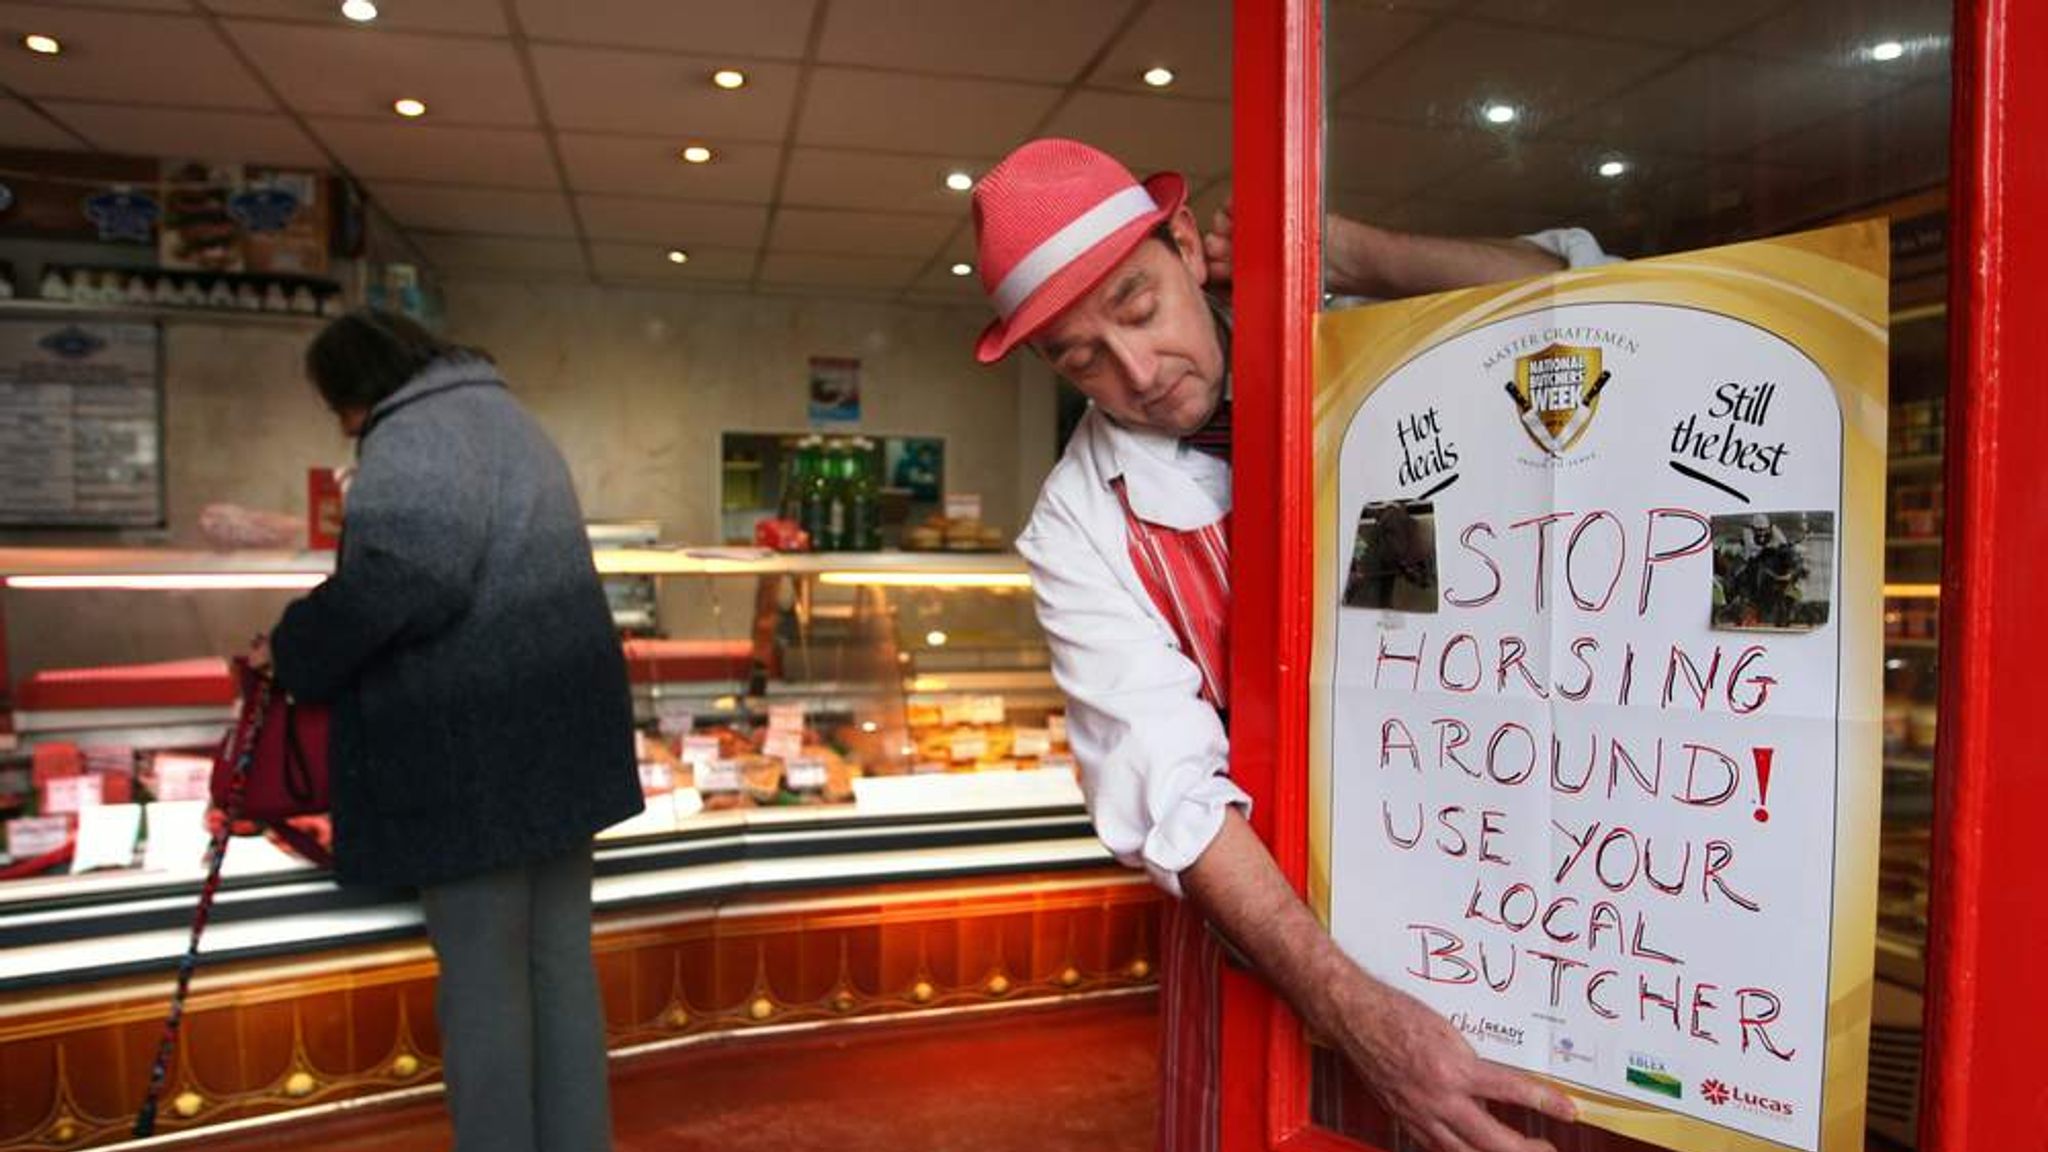 MASTER CRAFTSMEN
NATIONAL
BUTCHERS'
WEEK
Hot
deals
Still
the best
STOP
HORSING
AROUND!
USE YOUR
LOCAL
BUTCHER
READY
EBLEX
Lucas